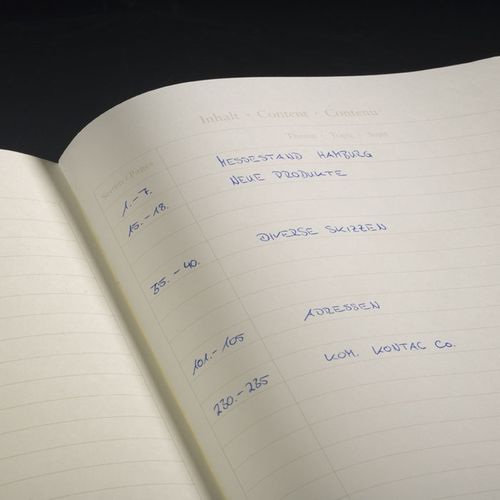 Inhalt • Content • Contenu
Seiten / Pages Thema • Topic • Sujet
1.-7. MESSESTAND HAMBURG
15.-18. NEUE PRODUKTE
35.-40. DIVERSE SKIZZEN
101.-105 ADRESSEN
230.-235 KOM. KONTAC Co.